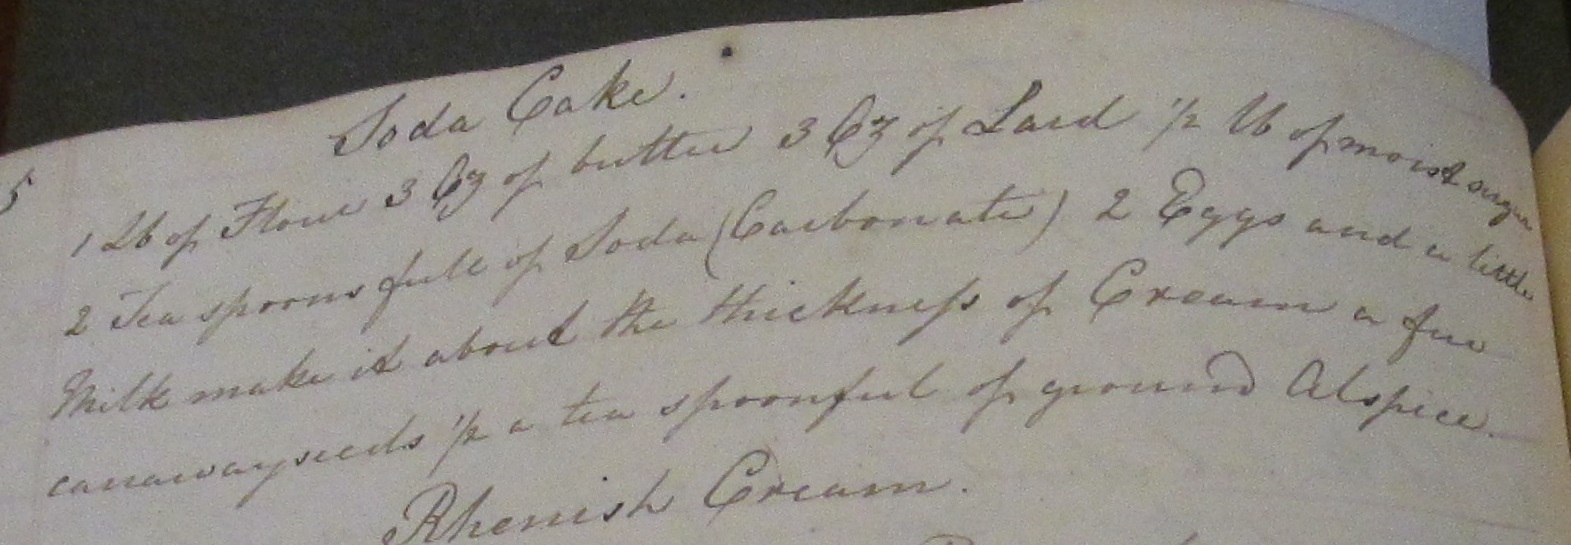 Soda Cake.
5
1 Lb of Flour 3 Oz of butter 3 Oz of Lard 1/2 lb of moist sugar
2 Tea spoons full of Soda (Carbonate) 2 Eggs and a little
Milk make it about the thickneſs of Cream a few
carrawayseeds 1/2 a tea spoonful of ground Alspice.
Rhenish Cream.